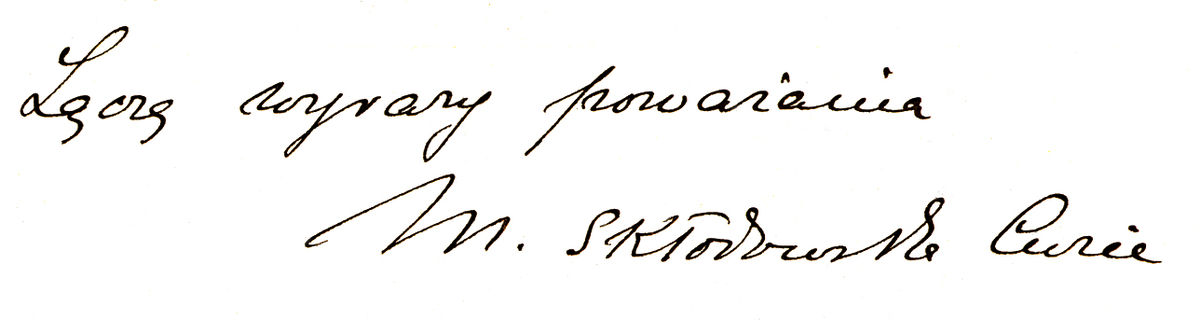 Łączę wyrazy poważania
M. Skłodowska Curie